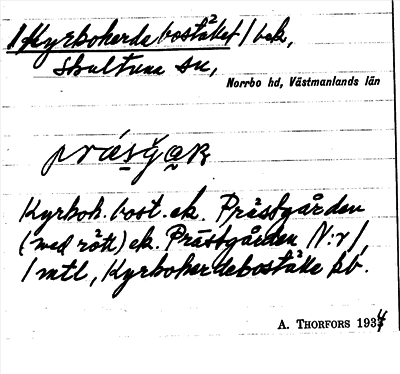 1 Kyrkoherdebostället / bek,
Skultuna sn,
Norrbo hd, Västmanlands län
Kyrkoh. bost. ek. Prästgården
(med rätt) ek. Prästgården N:r 1,
1 mtl, Kyrkoherdeboställe jb.
A. THORFORS 1934